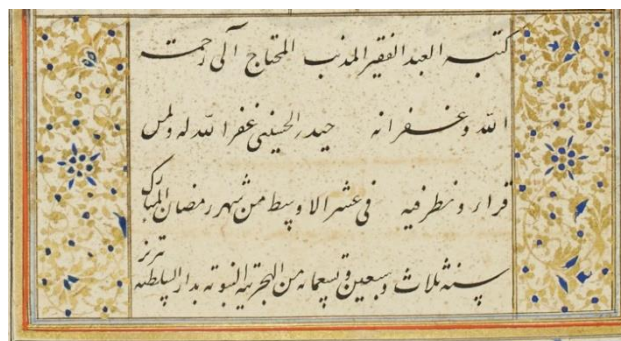 كتبه العبد الفقير المذنب المحتاج الى رحمة
الله و غفرانه حيدر الحسيني غفر الله له ولمن
قرا و نظر فيه في عشر الاوسط من شهر رمضان المبارك
سنة ثلاث و سبعين و تسعمائه من الهجرية النبوية بدار السلطنه تبريز